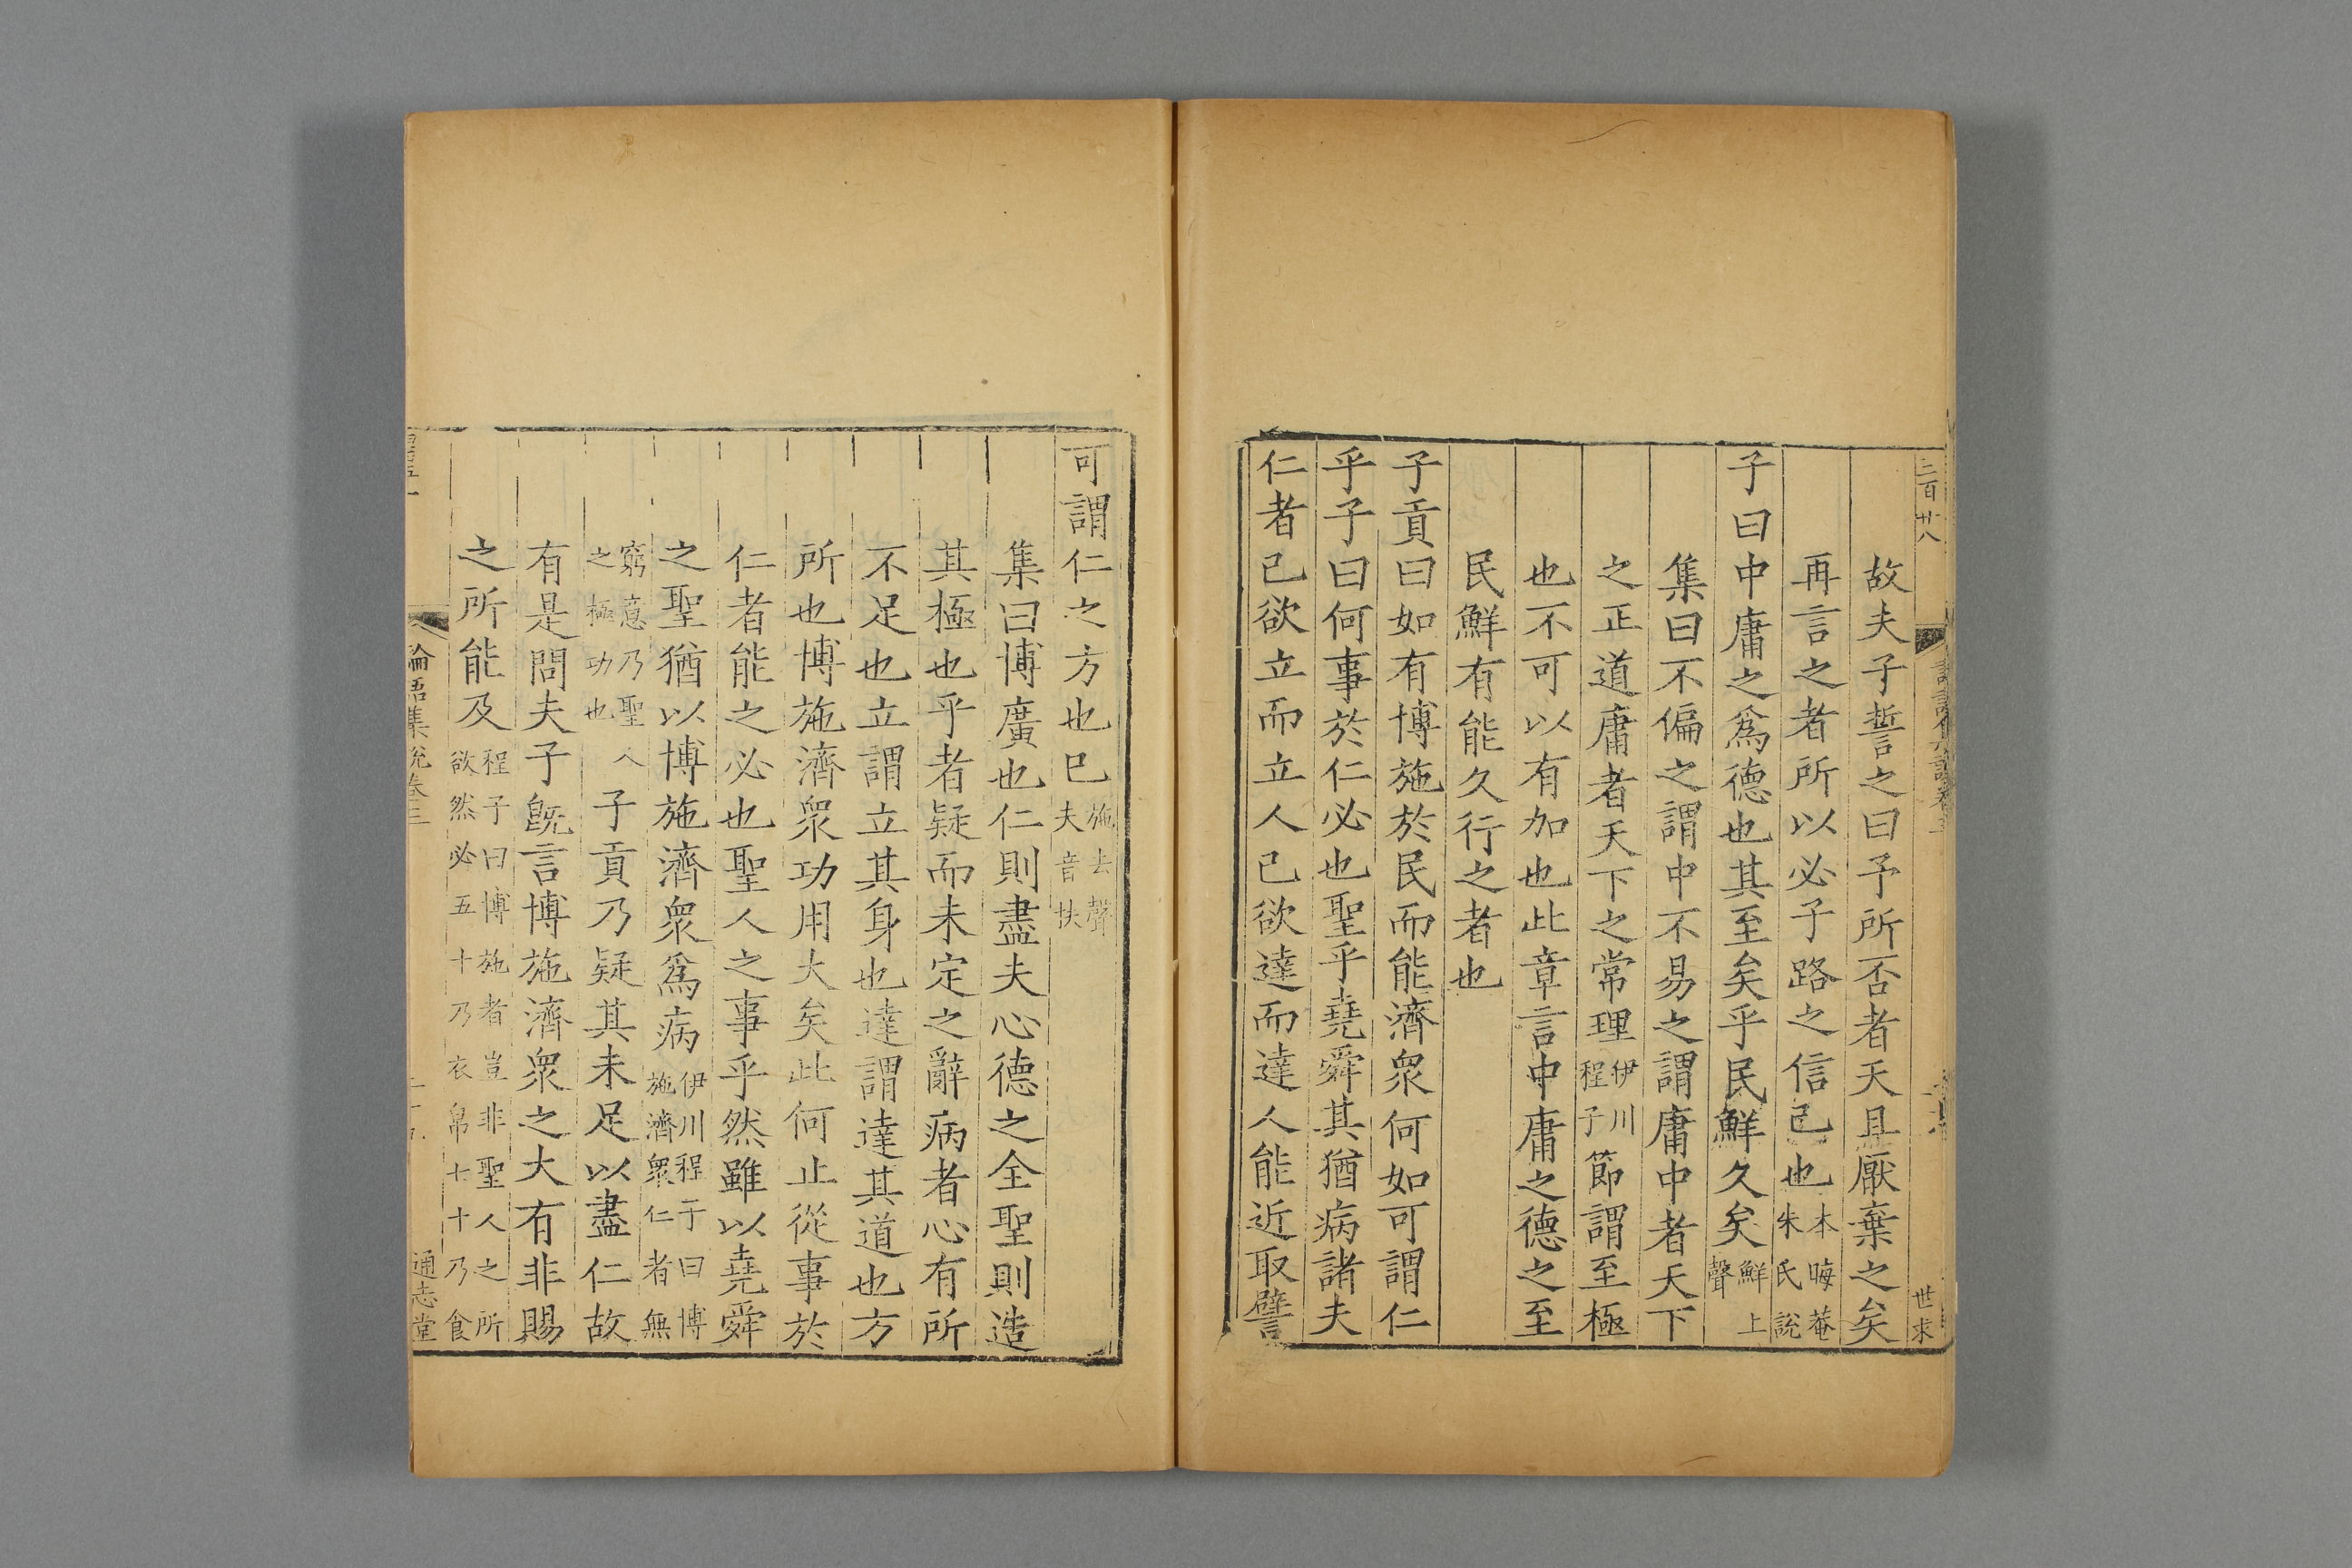 三百廿八
世求
故夫子誓之曰予所否者天且厭棄之矣
再言之者所以必子路之信已也本晦菴朱氏說
子曰中庸之爲德也其至矣乎民鮮久矣鮮上聲
集曰不偏之謂中不易之謂庸中者天下
之正道庸者天下之常理伊川程子節謂至極
也不可以有加也此章言中庸之德之至
民鮮有能久行之者也
子貢曰如有博施於民而能濟衆何如可謂仁
乎子曰何事於仁必也聖乎堯舜其猶病諸夫
仁者己欲立而立人己欲達而達人能近取譬
可謂仁之方也已施去聲夫音扶
集曰博廣也仁則盡夫心德之全聖則造
其極也乎者疑而未定之辭病者心有所
不足也立謂立其身也達謂達其道也方
所也博施濟衆功用大矣此何止從事於
仁者能之必也聖人之事乎然雖以堯舜
之聖猶以博施濟衆爲病伊川程子曰博施濟衆仁者無
窮意乃聖人之極功也子貢乃疑其未足以盡仁故
有是問夫子旣言博施濟衆之大有非賜
之所能及程子曰博施者豈非聖人之所欲然必五十乃衣帛七十乃食
論語集說卷三
通志堂